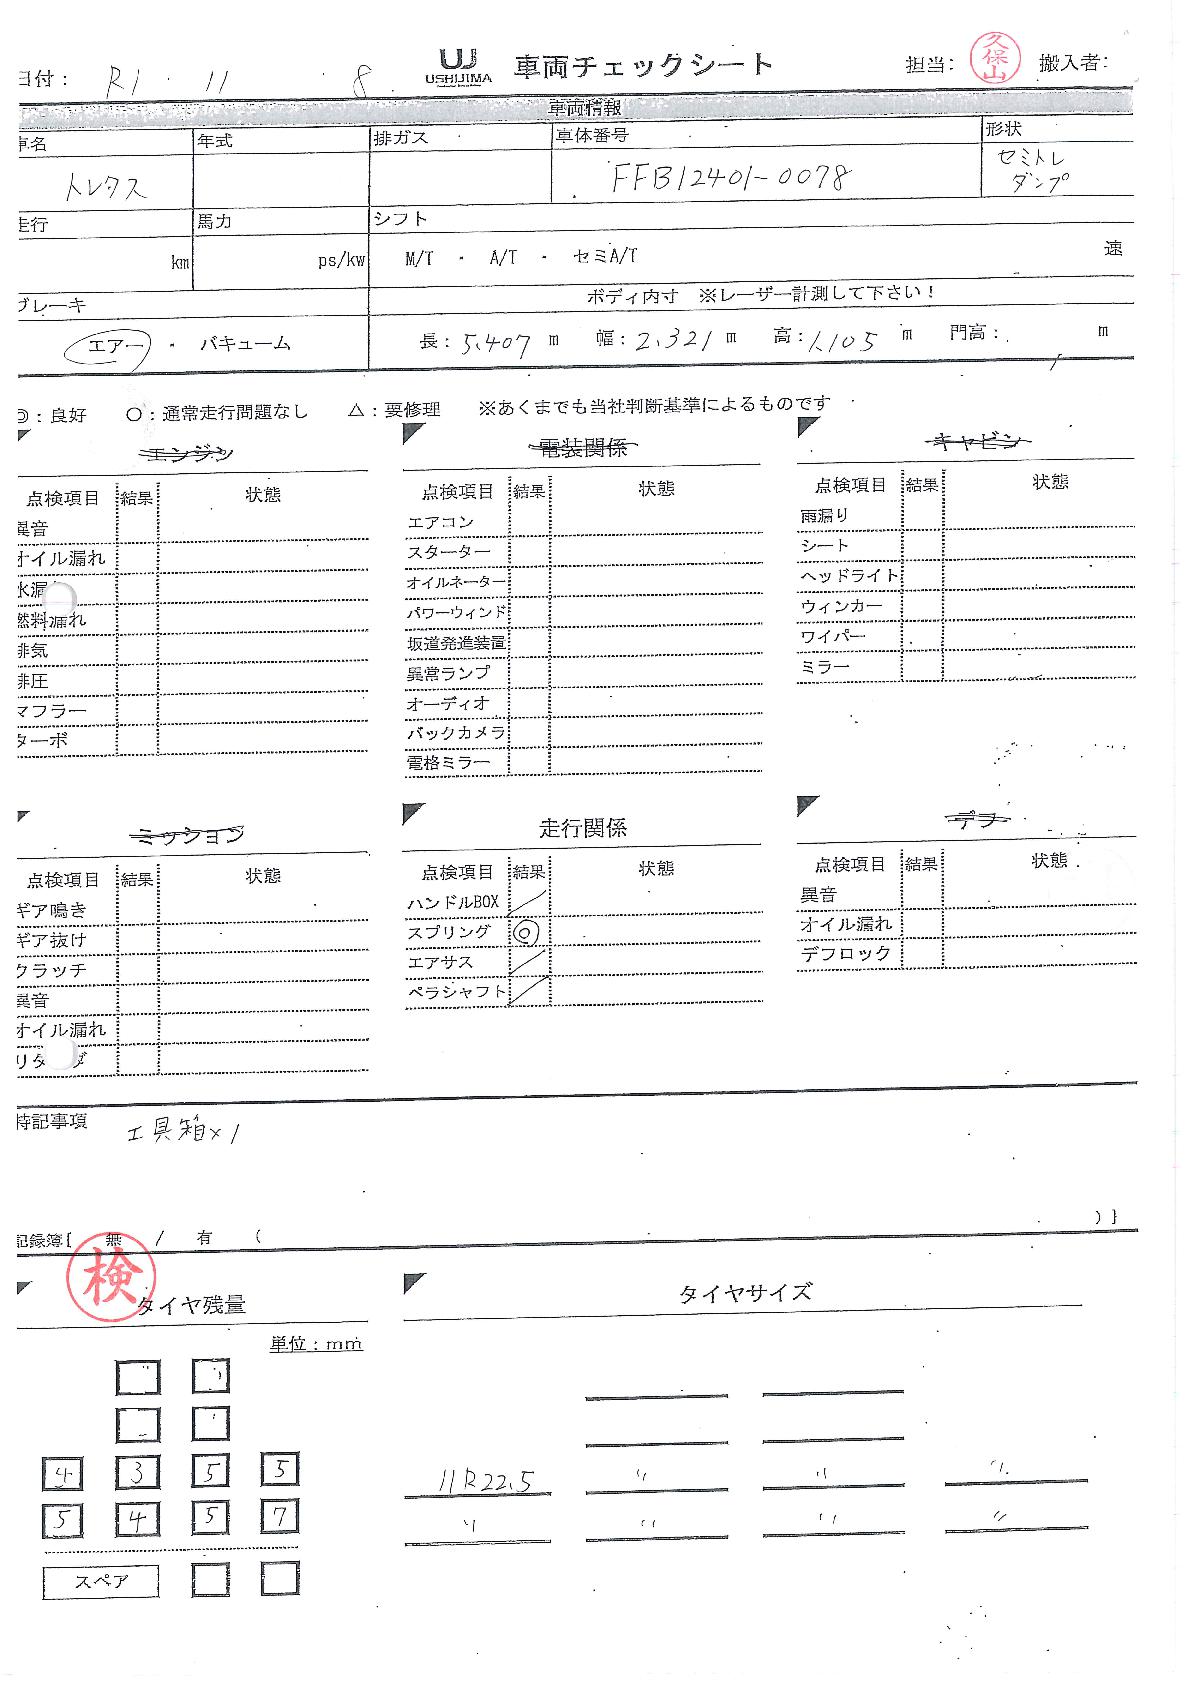 日付： R1 ・ 11 ・ 8
UJ USHIJIMA 車両チェックシート 担当： 久保山 搬入者：
車両情報
車名 年式 排ガス 車体番号 形状
トレクス FFB12401-0078 セミトレ
ダンプ
走行 馬力 シフト
km ps/kw M/T ・ A/T ・ セミA/T 速
ブレーキ ボディ内寸 ※レーザー計測して下さい！
エアー ・ バキューム 長：5.407 m 幅：2.321 m 高：1.105 m 門高： m
◎：良好 ○：通常走行問題なし △：要修理 ※あくまでも当社判断基準によるものです
エンジン
点検項目 結果 状態
異音
オイル漏れ
水漏れ
燃料漏れ
排気
排圧
マフラー
ターボ
電装関係
点検項目 結果 状態
エアコン
スターター
オイルネーター
パワーウィンド
坂道発進装置
異常ランプ
オーディオ
バックカメラ
電格ミラー
キャビン
点検項目 結果 状態
雨漏り
シート
ヘッドライト
ウィンカー
ワイパー
ミラー
ミッション
点検項目 結果 状態
ギア鳴き
ギア抜け
クラッチ
異音
オイル漏れ
リターダ
走行関係
点検項目 結果 状態
ハンドルBOX ／
スプリング ◎
エアサス ／
ペラシャフト ／
デフ
点検項目 結果 状態
異音
オイル漏れ
デフロック
特記事項 工具箱×1
記録簿{ 無 / 有 ( )}
検
タイヤ残量
単位：mm
4 3 5 5
5 4 5 7
スペア
タイヤサイズ
11R22.5 〃 〃 〃
〃 〃 〃 〃